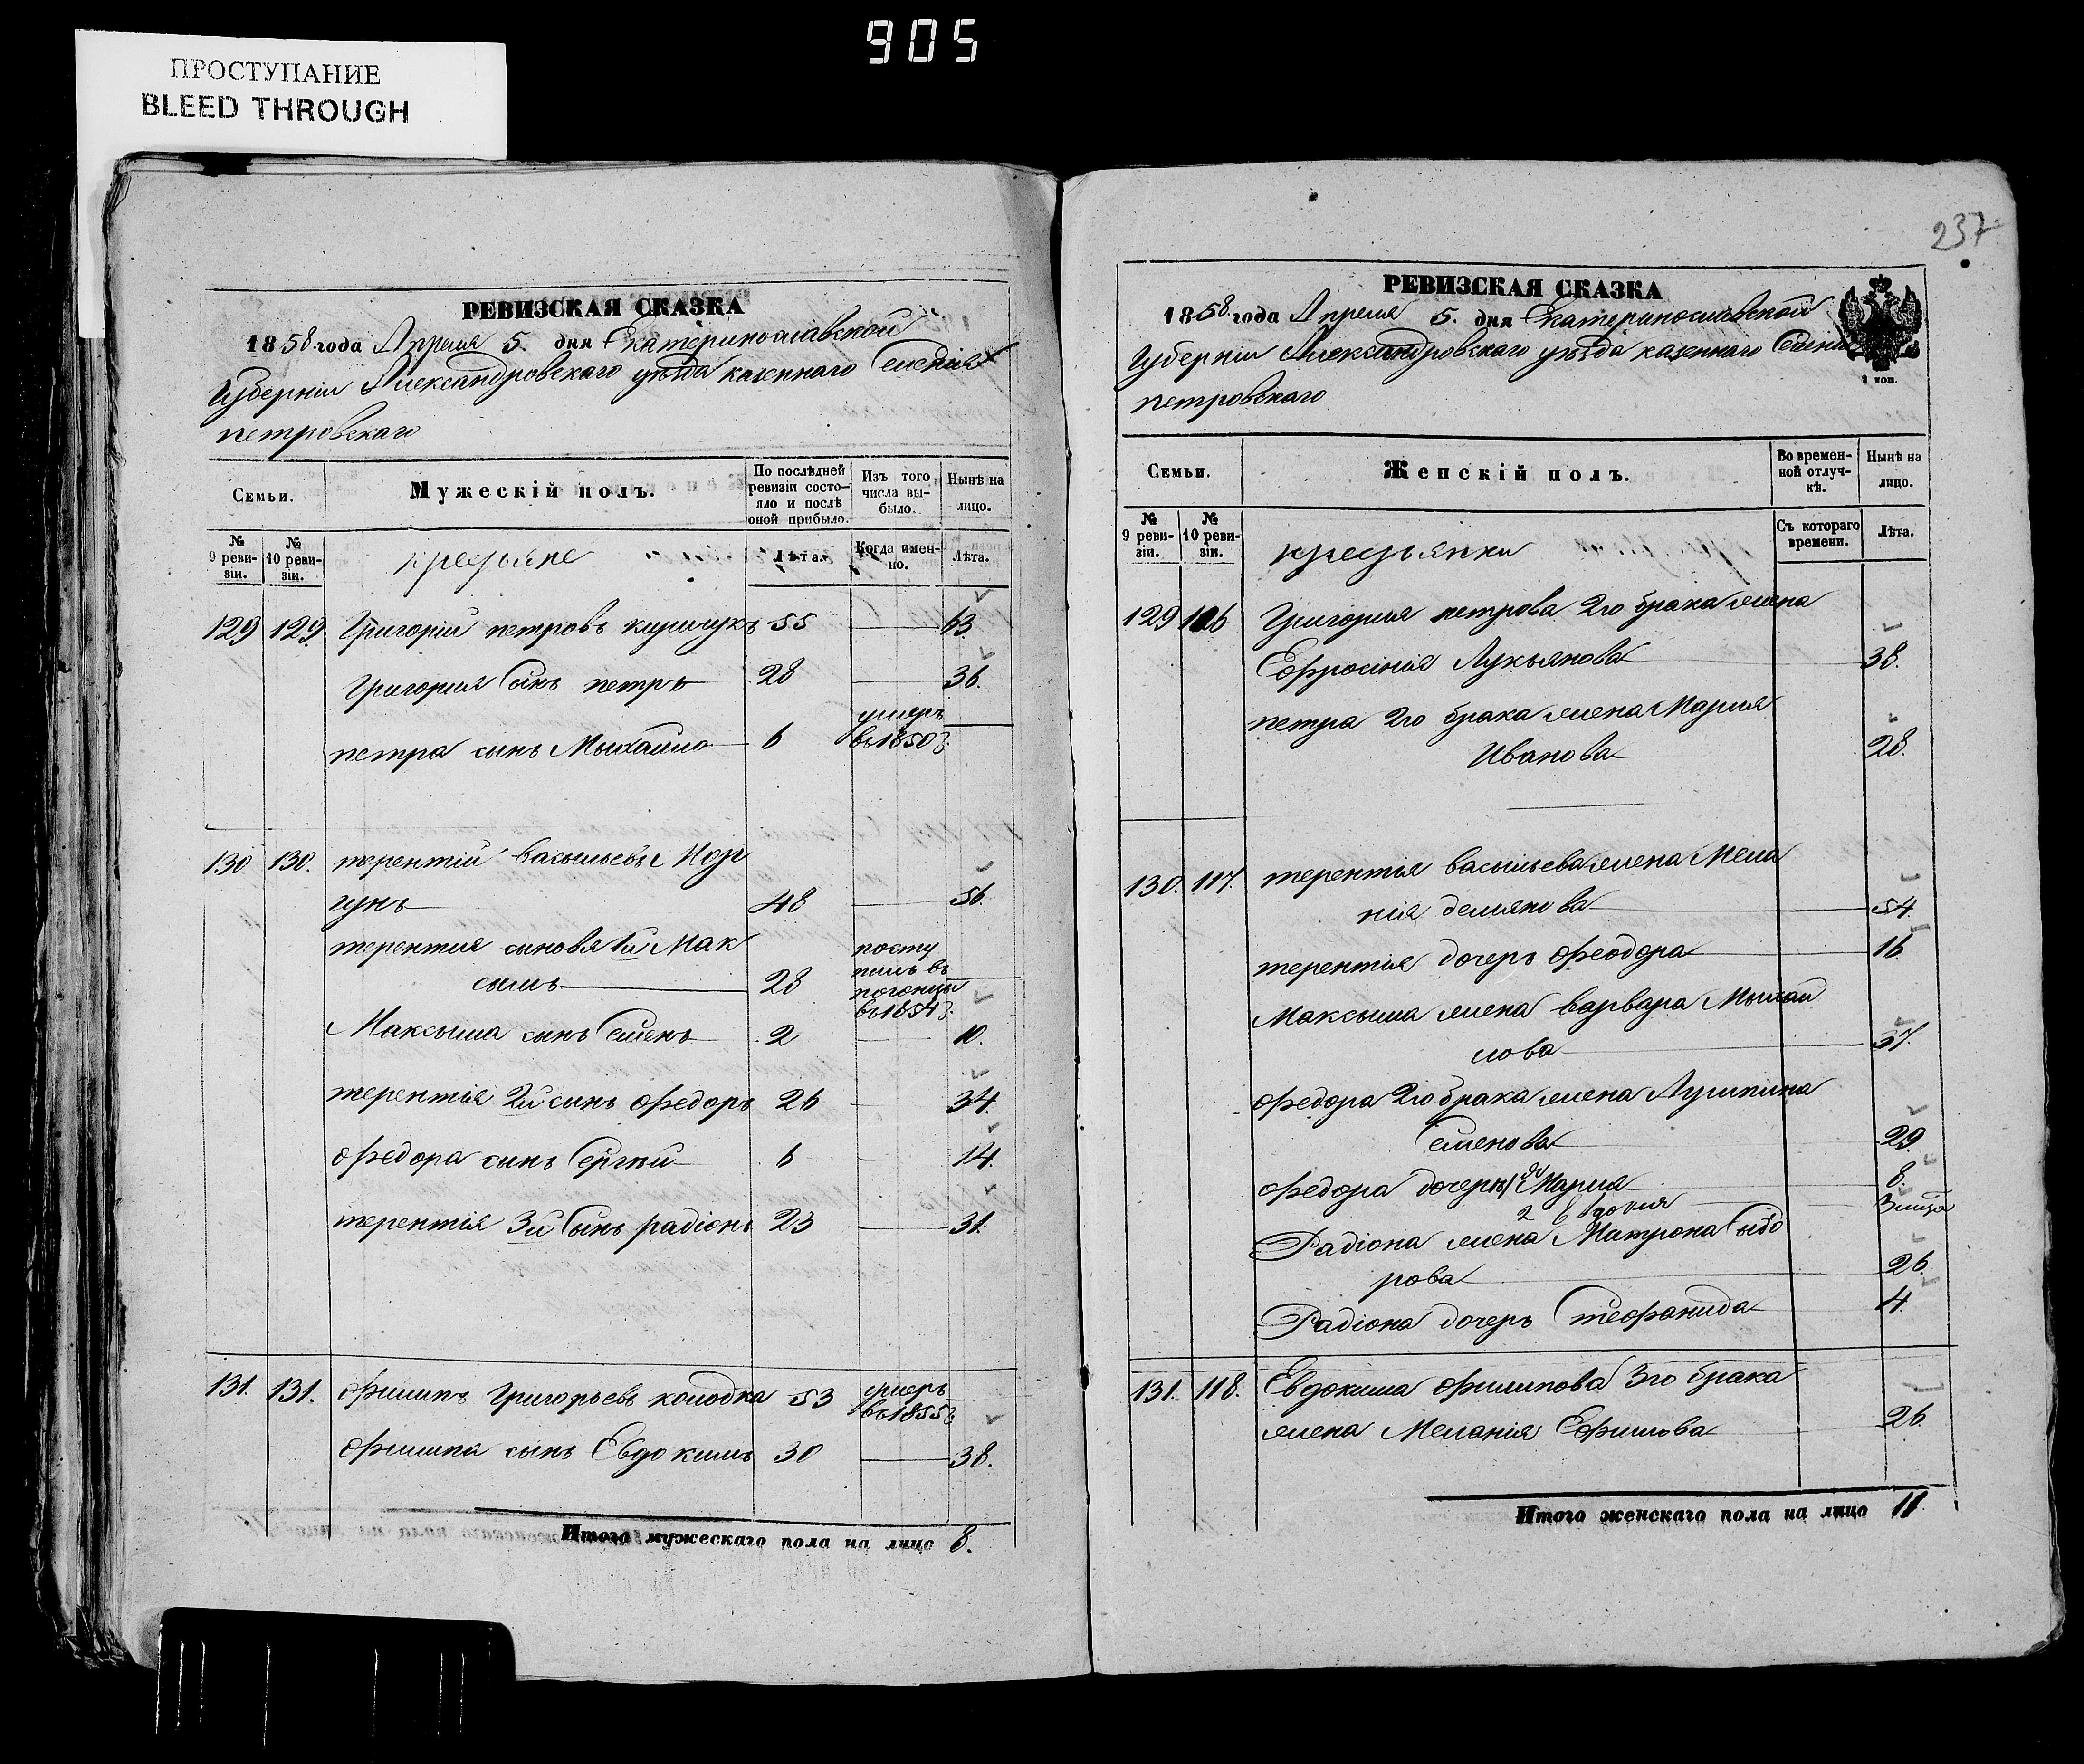 905
ПРОСТУПАНИЕ
BLEED THROUGH
РЕВИЗСКАЯ СКАЗКА
1858 года Апреля 5. дня Екатеринославской
Губернии Александровскаго уезда казеннаго Селения
петровскаго
Семьи.
Мужескій полъ.
По послѣдней ревизіи состо-
яло и послѣ оной прибыло.
Изъ того числа вы-
было.
Нынѣ на лицо.
№ 9 реви-
зіи.
№ 10 реви-
зіи.
крестьяне
Лѣта.
Когда имен-
но.
Лѣта.
129 129. Григорій петровъ 55 63
Григория сынъ петръ 28 36.
умеръ
петра сынъ Мыхайло 6 въ 1850 г.
130 130. терентій васыльевъ
48 56.
терентия сыновя 1й Мак
сымъ 28 посту
пилъ въ
погонцы
въ 1854 г.
Максыма сынъ Семенъ 2 10.
терентія 2й сынъ Федоръ 26 34.
Федора сынъ Сергей 6 14.
терентія 3й сынъ радіонъ 23 31.
131. 131. Филипъ Григорьевъ колодка 53 умеръ
въ 1855 г.
Филипа сынъ Евдокимъ 30 38.
Итого мужескаго пола на лицо 8.
237
РЕВИЗСКАЯ СКАЗКА
1858 года Апреля 5. дня Екатеринославской
Губерніи Александровскаго уезда казеннаго Селения
петровскаго
Семьи.
Женскій полъ.
Во времен-
ной отлуч-
кѣ.
Нынѣ на лицо.
№ 9 реви-
зіи.
№ 10 реви-
зіи.
крестьянки
Съ котораго времени.
Лѣта.
129 116 Григория петрова 2го брака жена
Ефросиния Лукьянова 38.
петра 2го брака жена Мария
Иванова 28.
130. 117. терентія васыльева жена Мела
нія демянова 54.
терентія дочерь Феодора 16
Максыма жена варвара Мыхай
лова 37.
Федора 2го брака жена
Семенова 29
Федора дочери 1я Мария 8.
2 Евдокия 3 меца
Радіона жена Матрона Сыдо
рова 26
Радіона дочерь 4.
131. 118. Евдокима Филипова 3го брака
жена Меланія Ефимова 26
Итого женскаго пола на лицо 11.